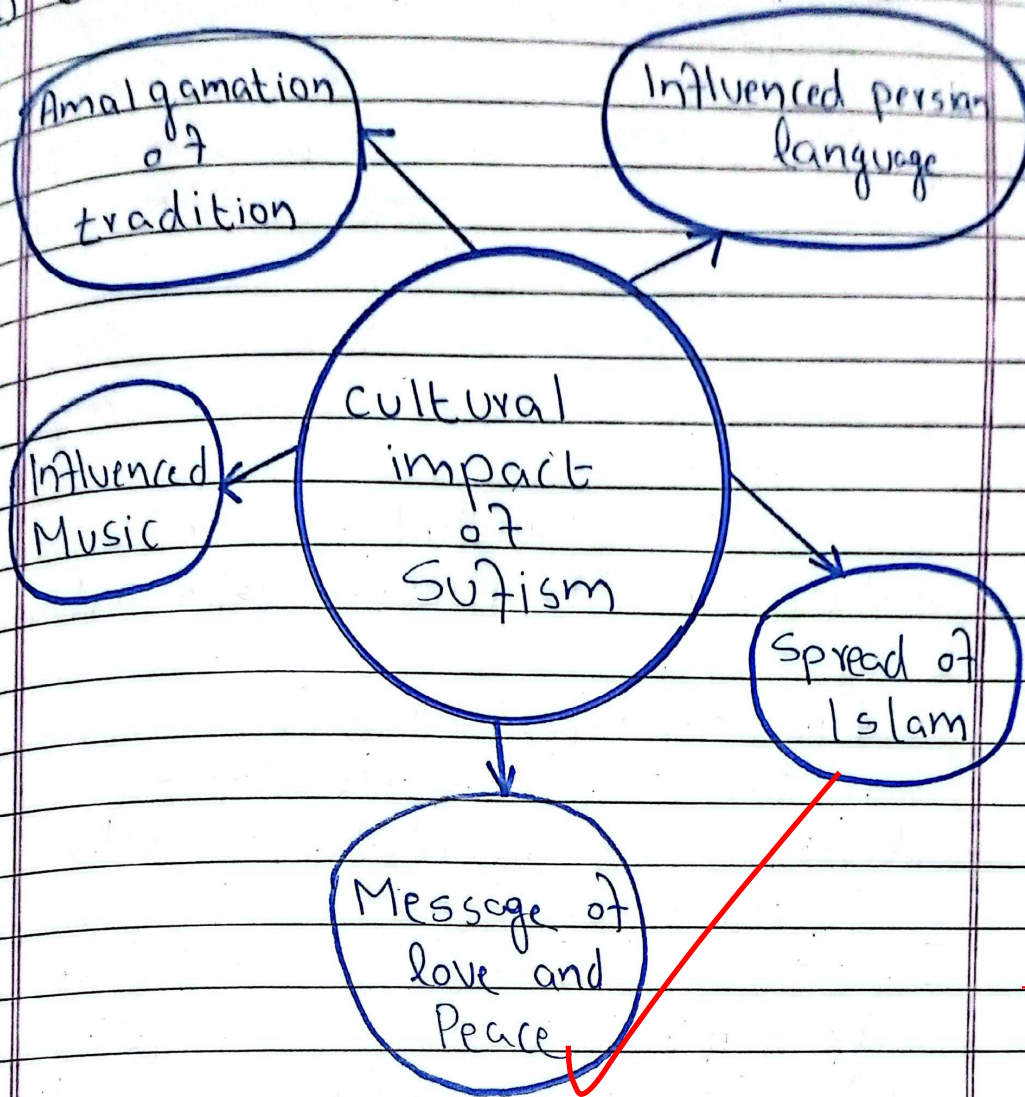 Amalgamation
of
tradition
Influenced persian
language
cultural
impact
of
Sufism
Influenced
Music
Spread of
Islam
Message of
love and
Peace